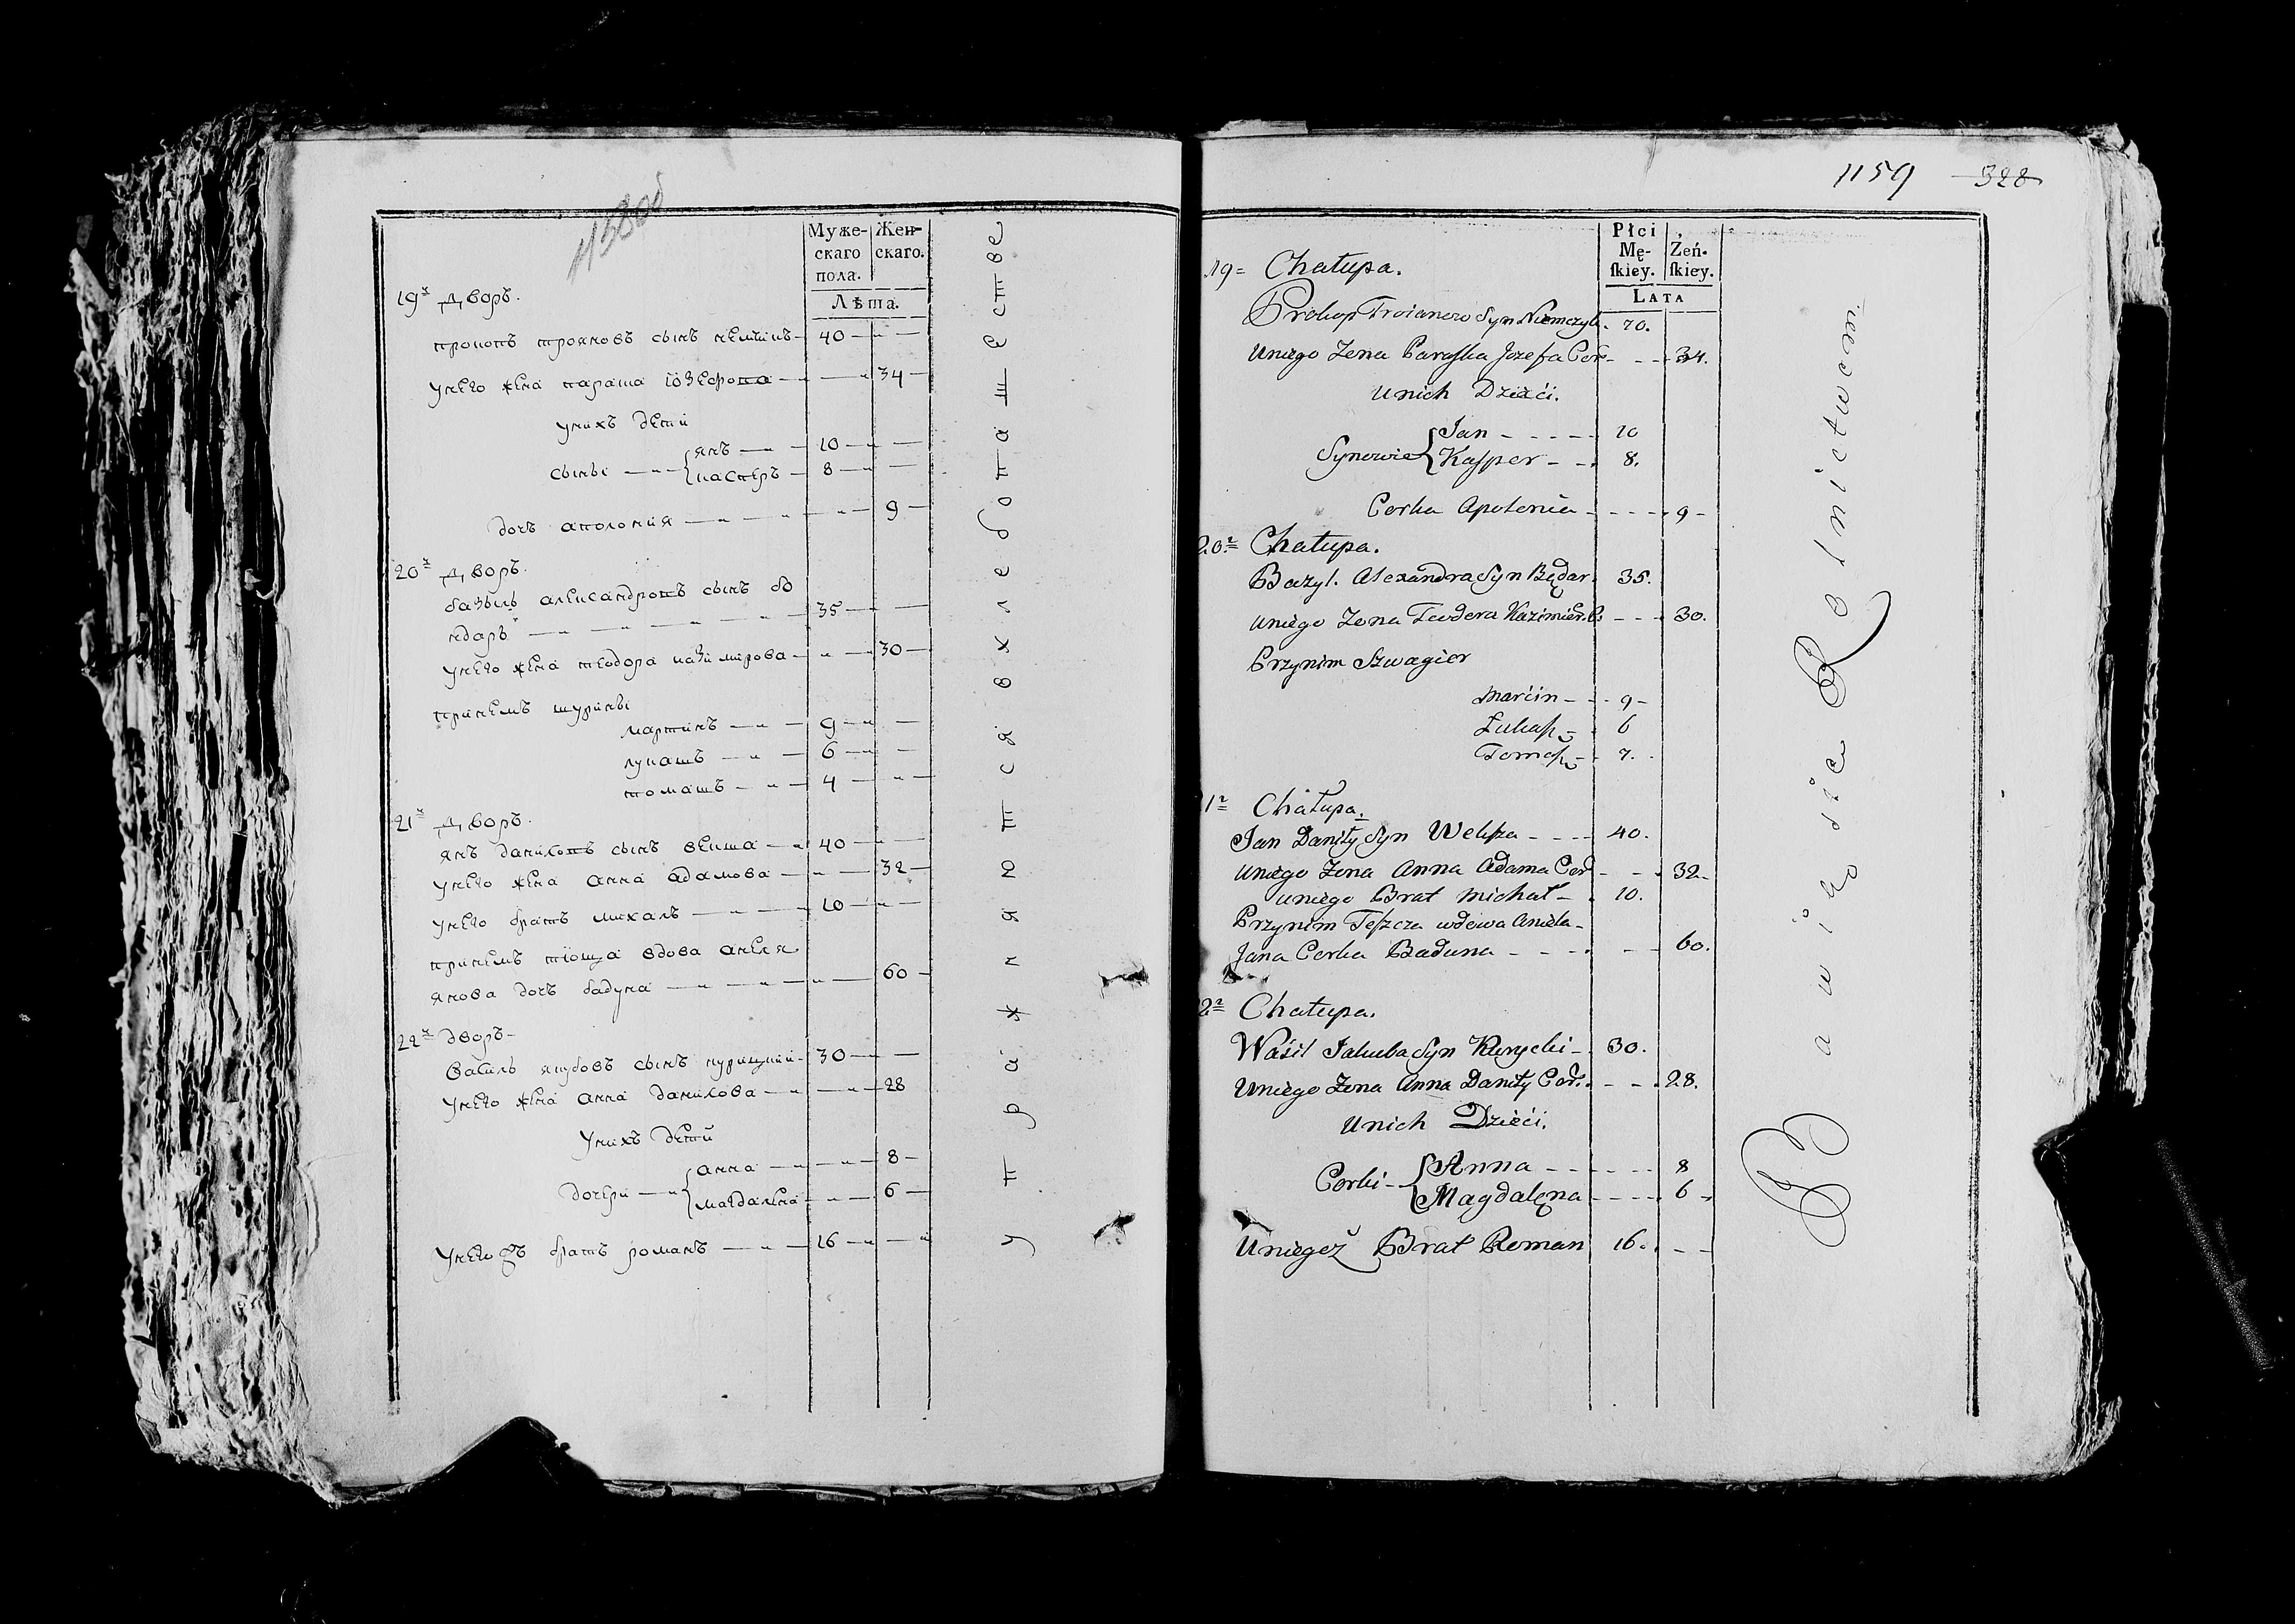 1158об
Муже-
скаго
пола.
Жен-
скаго.
Лѣта.
19й дворъ.
прокопъ трояновъ сынъ немчикъ 40
унего жена параша юзефова 34
унихъ дети
сыны янъ 10
касперъ 8
дочь аполония 9
20й дворъ.
базыль александровъ сынъ бо
ндаръ 35
унего жена теодора казимирова 30
принемъ шурины
мартинъ 9
лукашъ 6
томашъ 4
21й дворъ.
янъ даниловъ сынъ векша 40
унего жена анна адамова 32
унего братъ михалъ 10
принемъ тюща вдова анеля
янова дочь бадуна 60
22й дворъ
василь якубовъ сынъ курицкий 30
унего жена анна данилова 28
унихъ дети
дочери анна 8
магдалена 6
унего жъ братъ романъ 16
упражняются въ хлебопашестве
1159 328
Płci
Mę-
ſkiey.
Żeń-
ſkiey.
LATA
19 Chałupa.
Prokop Troianow Syn Niemczyk 70.
Uniego Zona Paraſka Jozefa Cor 34.
Unich Dzieći.
Synowie Jan 10
Kaſper 8.
Corka Apolonia 9
20 Chałupa.
Bazyl. Alexandra Syn Będar 35.
Uniego Zona Teodora Kazimier. C. 30.
Przynim Szwagier
Marcin 9
Łukaſz 6
Tomaſz 7.
1 Chałupa.
Jan Daniły Syn Wekſza 40.
Uniego Zona Anna Adama Cor 32
Uniego Brat Michał 10.
Przynim Teſzcza wdowa Aniela
Jana Corka Baduna 60.
2 Chałupa.
Waśil Jakuba Syn Kurycki 30.
Uniego Zona Anna Daniły Cor. 28.
Unich Dzieći.
Corki Anna 8
Magdalena 6
Uniegoż Brat Roman 16.
Bawią sie Rolnictwem.